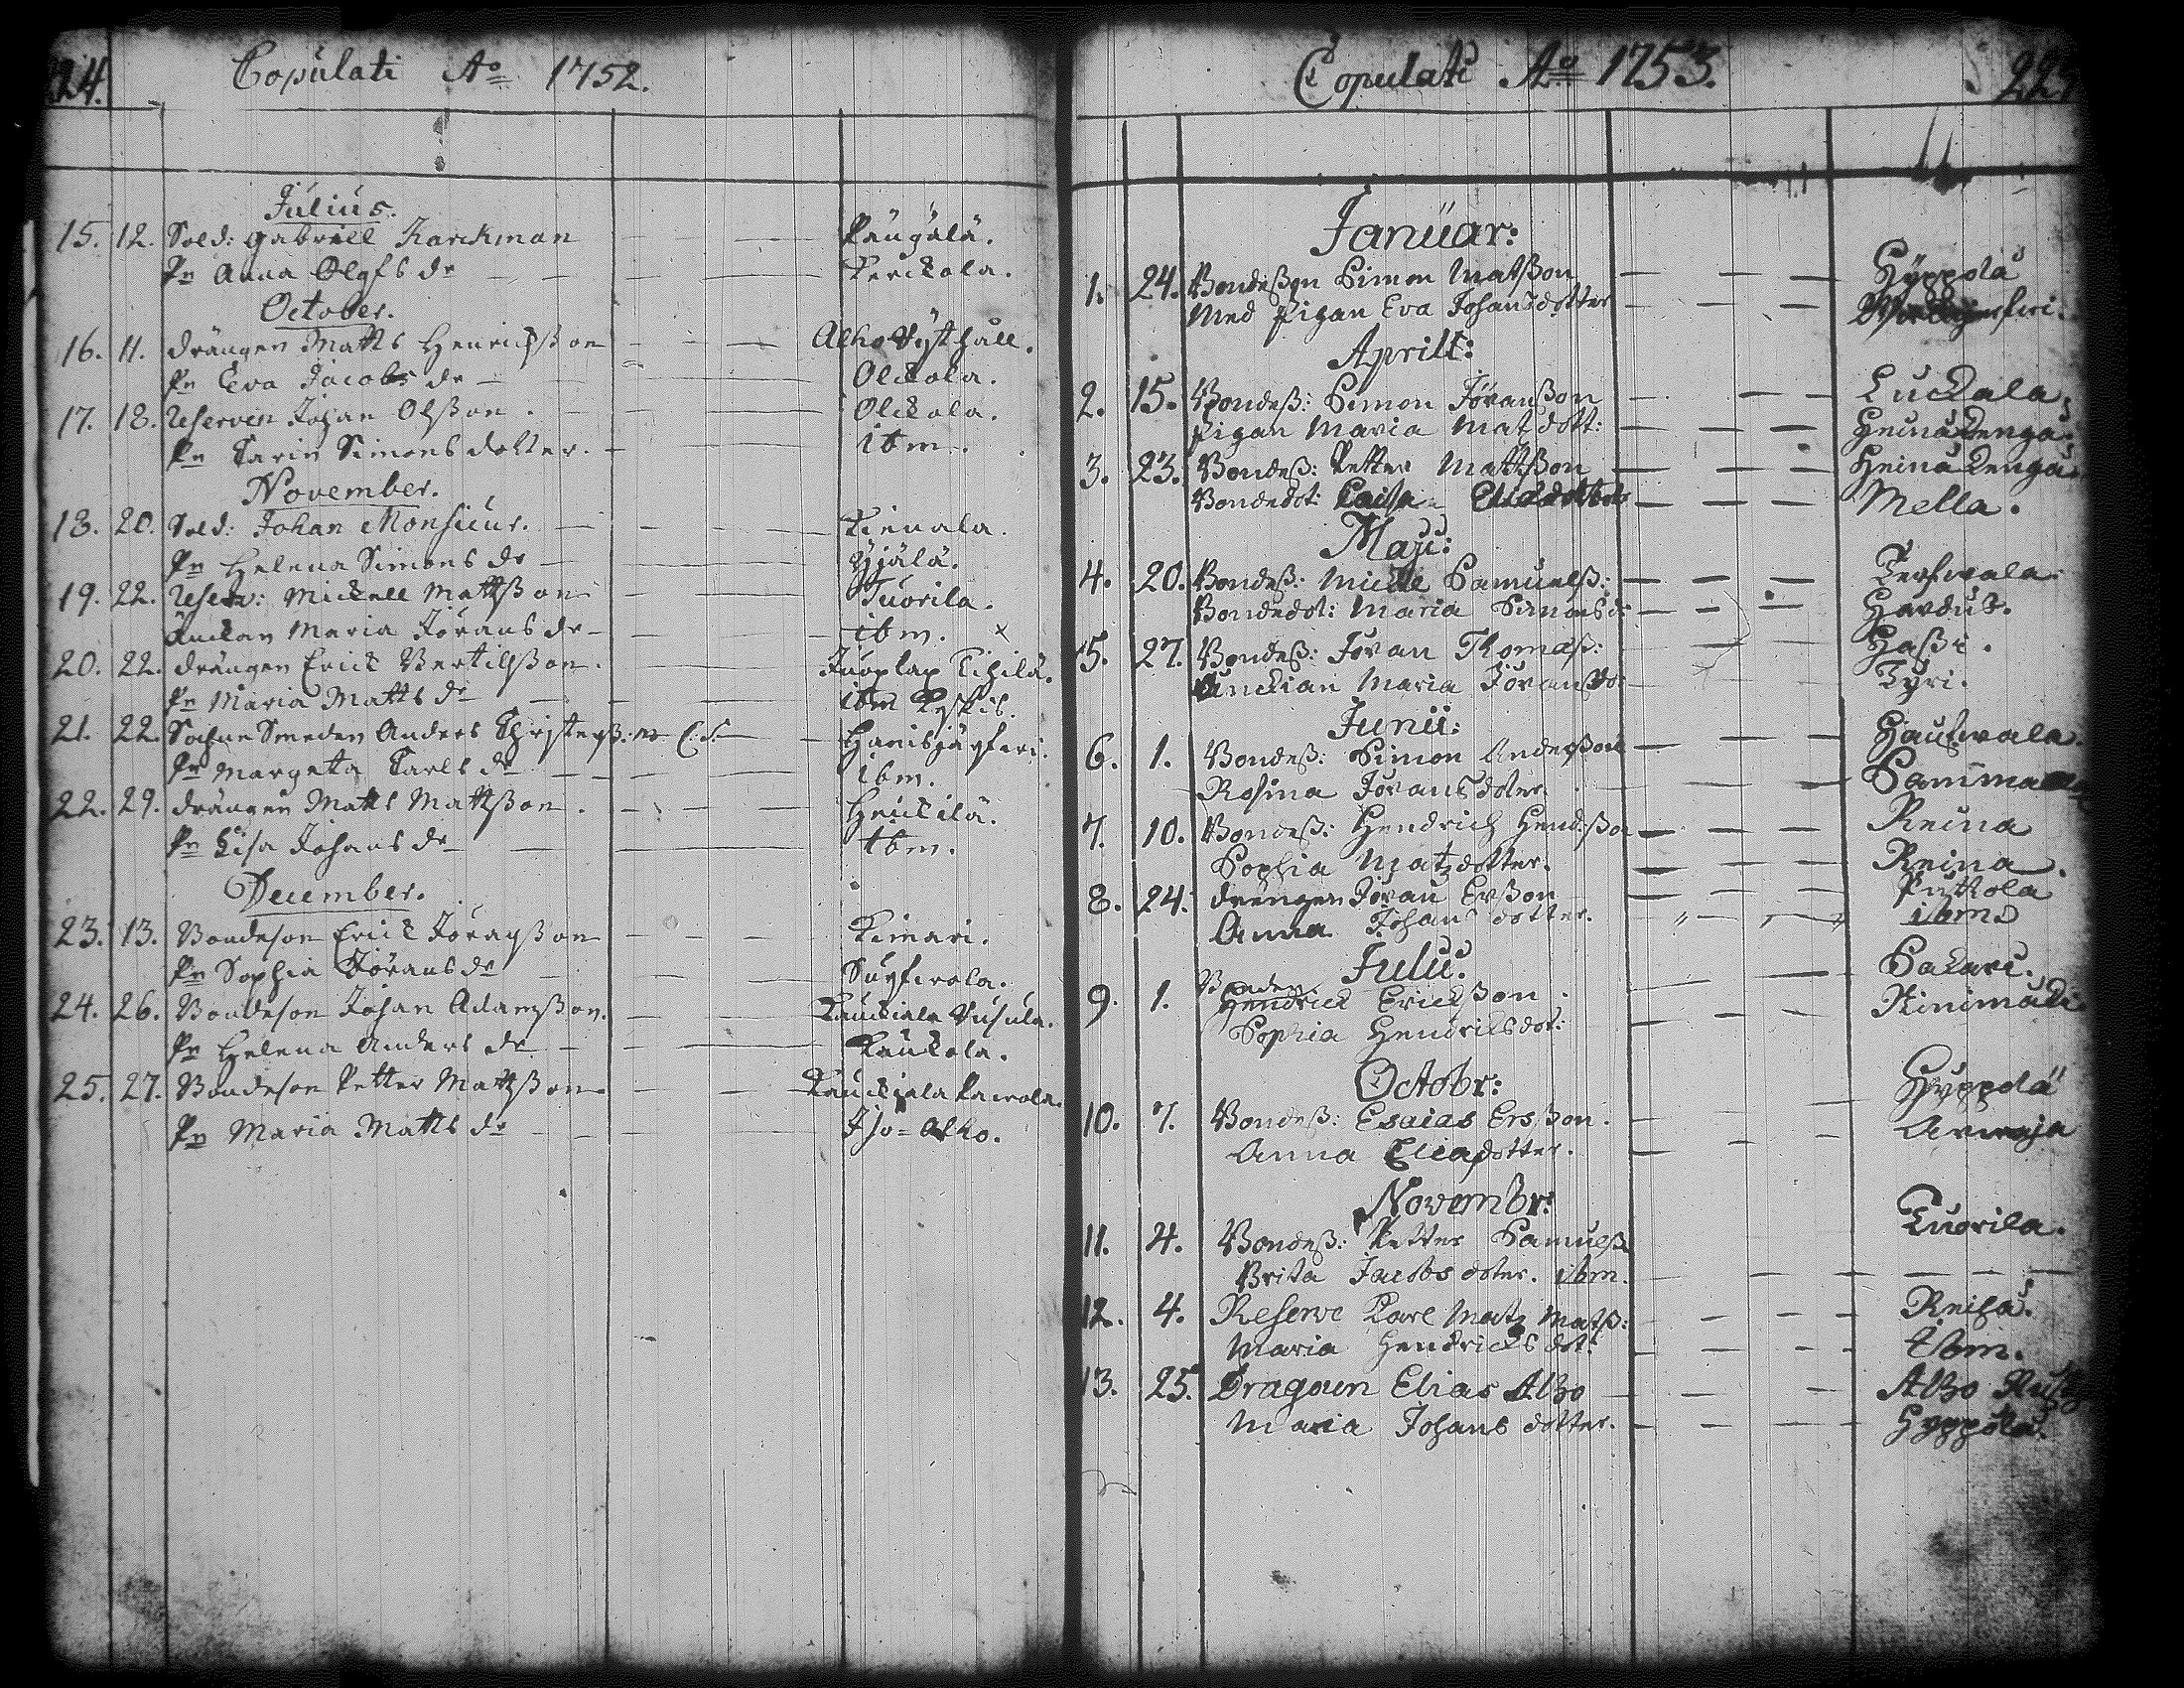 224.
Copulati Ao 1752.
Julius.
15. 12. Sold: Gabriell Karckman — — — Pungälä.
Pn Anna Olofs dr — — — Kerckola.
October.
16. 11. drängen Matts Henrichßon — — — Alho
Pn Eva Jacobs dr — — — Olckola.
17. 18. Reserven Johan Olßon. — — — Olckola.
Pn Karin Simons dotter. — — — ibm.
November.
18. 20. Sold: Johan Monsieur. — — — Kienala.
Pn Helena Simons dr — — — Yjälä.
19. 22. Reserv: Mickell Mattßon — — — Tuorila.
Änckan Maria Jörans dr — — — ibm. x
20. 22. drängen Erick Bertillßon. — — —
Pn Maria Matts dr — — — ibm
21. 22. Sochne Smeden Anders — —
Pn Margeta Carls dr — — — ibm.
22. 29. drängen Matts Mattßon. — — — Heickilä.
Pn Lisa Johans dr — — — ibm.
December.
23. 13. Bondeson Erick Joranßon — — — Kimari.
Pn Sophia Jörans dr — — —
24. 26. Bondeson Johan Adamßon. — — — Kauckiala
Pn Helena Anders dr — — — Kaukola.
25. 27. Bondeson Petter Mattßon — — — Kauckiala Pawola.
Pn Maria Matts dr — — — Iso=Alho.
Copulati Ao 1753. 225
Januar:
1. 24. Bondeßon Simon Matßon — — — Hyppölä
Med Pigan Eva Johansdotter — — —
Aprill:
2. 15. Bondeß: Simon Jöranßon — — — Luckala
Pigan Maria Matsdott: — — —
3. 23. Bondeß: Petter Mattßon — — —
Bondedot: Caisa — — — Mella.
Maji:
4. 20. Bondeß: Mickel Samuelß: — — — Terfwala
Bondedot: Maria Simonsdr — — — Hardus.
5. 27. Bondeß: Jöran Thomaß: — — — Haßi.
Enckian Maria Jörans dr — — — Tyri.
Junii:
6. 1. Bondeß: Simon Anderßon — — —
Rosina Jörans doter. — — —
7. 10. Bondeß: Hendrich Hendßon — — — Reina
Sophia Matzdotter. — — — Reina.
8. 24. drengen Jöran Erßon — — —
Anna Johans dotter. — — ibm
Julii.
Bonden
9. 1. Hendrick Erickßon — — — Pakari.
Sophia Hendricksdot: — — —
Octobr:
10. 7. Bondeß: Esaias Erßon. — — — Hyppölä
Anna Eliadotter. — — —
Novembr:
11. 4. Bondeß: Petter Samuelß — Tuorila.
Brita Jacobs doter. ibm. — — —
12. 4. Reserve Karl Matz Matß: — — —
Maria Hendricks dot: — — — Ibm.
13. 25. Dragoun Elias Alho — — — Alho
Maria Johans dotter. — — — Hyppölä.